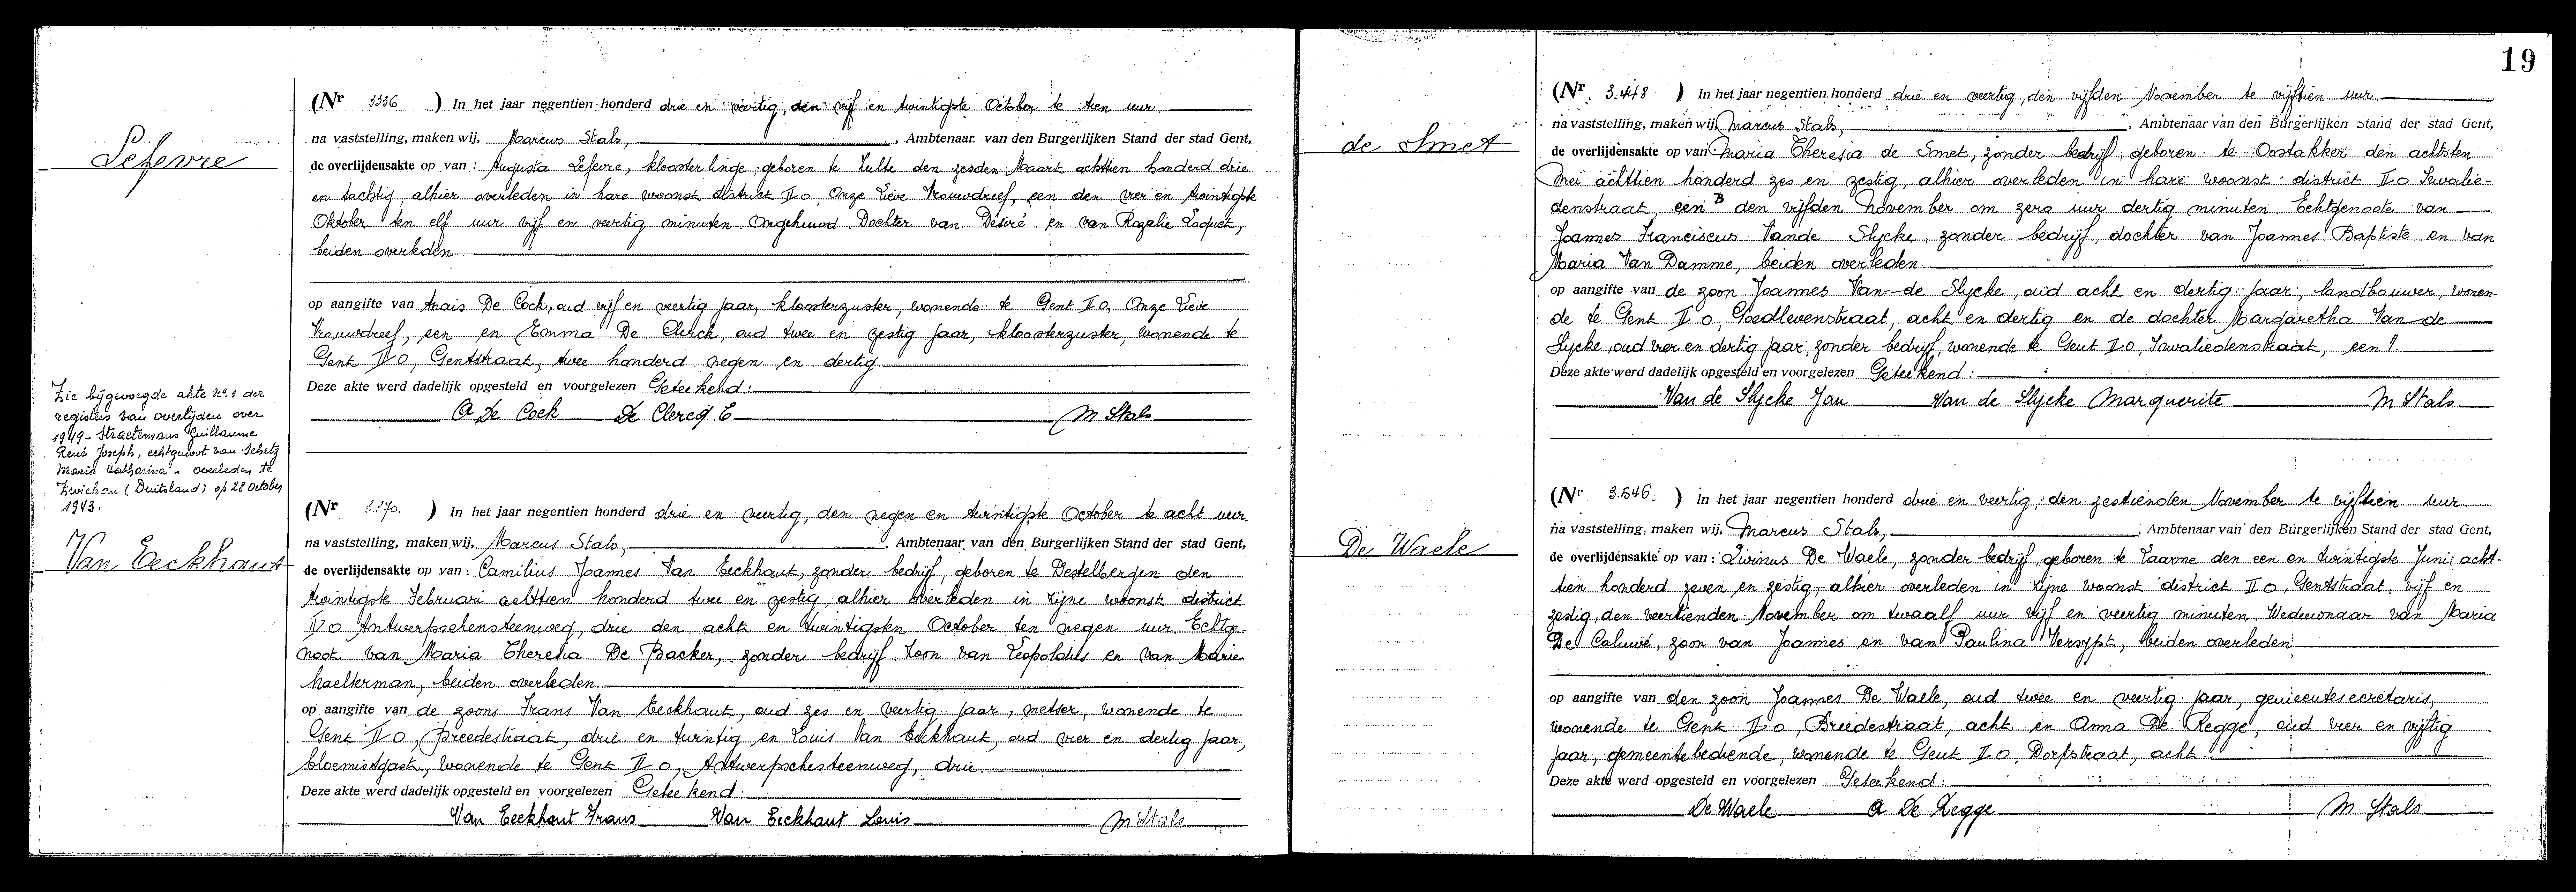 Lefevre
(Nr 3336 ) In het jaar negentien honderd drie en veertig, den vijf en twintigste October te tien uur
na vaststelling, maken wij, Marcus Stals, , Ambtenaar van den Burgerlijken Stand der stad Gent,
de overlijdensakte op van : Augusta Lefevre, kloosterlinge, geboren te Zulte den zesden Maart achttien honderd drie
en tachtig, alhier overleden in hare woonst district II o, Onze Lieve Vrouwdreef, een den vier en twintigste
Oktober ten elf uur vijf en veertig minuten. Ongehuwd. Dochter van Désiré en van Rozalie Loquet,
beiden overleden
op aangifte van Anais De Cock, oud vijf en veertig jaar, kloosterzuster, wonende te Gent II o, Onze Lieve
Vrouwdreef, een en Emma De Clerck, oud twee en zestig jaar, kloosterzuster, wonende te
Gent II o, Gentstraat, twee honderd negen en dertig
Deze akte werd dadelijk opgesteld en voorgelezen Geteekend:
A De Cock De Clercq E M Stals
Zie bijgevoegde akte nr. 1 der
registers van overlijden over
1949 - Straetemans Guillaume
René Joseph, echtgenoot van Schetz
Maria Catharina - overleden te
Zwickau (Duitsland) op 28 october
1943.
Van Eeckhaut
(Nr ) In het jaar negentien honderd drie en veertig, den negen en twintigste October te acht uur.
na vaststelling, maken wij, Marcus Stals, , Ambtenaar van den Burgerlijken Stand der stad Gent,
de overlijdensakte op van : Camilius Joannes Van Eeckhaut, zonder bedrijf, geboren te Destelbergen den
twintigste Februari achttien honderd twee en zestig, alhier overleden in zijne woonst district
II o Antwerpschensteenweg, drie den acht en twintigsten October ten negen uur. Echtge-
noot van Maria Theresia De Backer, zonder bedrijf. Zoon van Leopoldus en van Marie
haelterman, beiden overleden
op aangifte van de zoons Frans Van Eeckhaut, oud zes en veertig jaar, metser, wonende te
Gent II o, Breedestraat, drie en twintig en Louis Van Eeckhaut, oud vier en dertig jaar,
bloemistgast, wonende te Gent II o, Antwerpschesteenweg, drie
Deze akte werd dadelijk opgesteld en voorgelezen Geteekend:
Van Eeckhaut Frans Van Eeckhaut Louis M Stals
19
de Smet
(Nr. 3.448 ) In het jaar negentien honderd drie en veertig, den vijfden November te vijftien uur
na vaststelling, maken wij Marcus Stals, , Ambtenaar van den Burgerlijken Stand der stad Gent,
de overlijdensakte op van Maria Theresia de Smet, zonder bedrijf, geboren te Oostakker den achtsten
Mei achttien honderd zes en zestig, alhier overleden in hare woonst district II o Invalie-
denstraat, een B den vijfden November om zero uur dertig minuten. Echtgenoote van
Joannes Franciscus Vande Slycke, zonder bedrijf, dochter van Joannes Baptiste en van
Maria Van Damme, beiden overleden
op aangifte van de zoon Joannes Van de Slycke, oud acht en dertig jaar, landbouwer, wonen-
de te Gent II o, Goedlevenstraat, acht en dertig en de dochter Margaretha Van de
Slycke, oud vier en dertig jaar, zonder bedrijf, wonende te Gent II o, Invaliedenstraat, een
Deze akte werd dadelijk opgesteld en voorgelezen Geteekend:
Van de Slycke Jan Van de Slycke Marguerite M Stals
De Waele
(Nr 3.546. ) In het jaar negentien honderd drie en veertig, den zestienden November te vijftien uur
na vaststelling, maken wij, Marcus Stals, , Ambtenaar van den Burgerlijken Stand der stad Gent,
de overlijdensakte op van : Livinus De Waele, zonder bedrijf, geboren te Laarne den een en twintigste Juni acht-
tien honderd zeven en zestig, alhier overleden in zijne woonst district II o, Gentstraat, vijf en
zestig, den veertienden November om twaalf uur vijf en veertig minuten. Weduwnaar van Maria
De Caluwé, zoon van Joannes en van Paulina Versypt, beiden overleden
op aangifte van den zoon Joannes De Waele, oud twee en veertig jaar, gemeentesecretaris,
wonende te Gent II o, Breedestraat, acht en Anna De Regge, oud vier en vijftig
jaar, gemeentebediende, wonende te Gent II o, Dorpstraat, acht
Deze akte werd opgesteld en voorgelezen Geteekend:
De Waele A De Regge M Stals